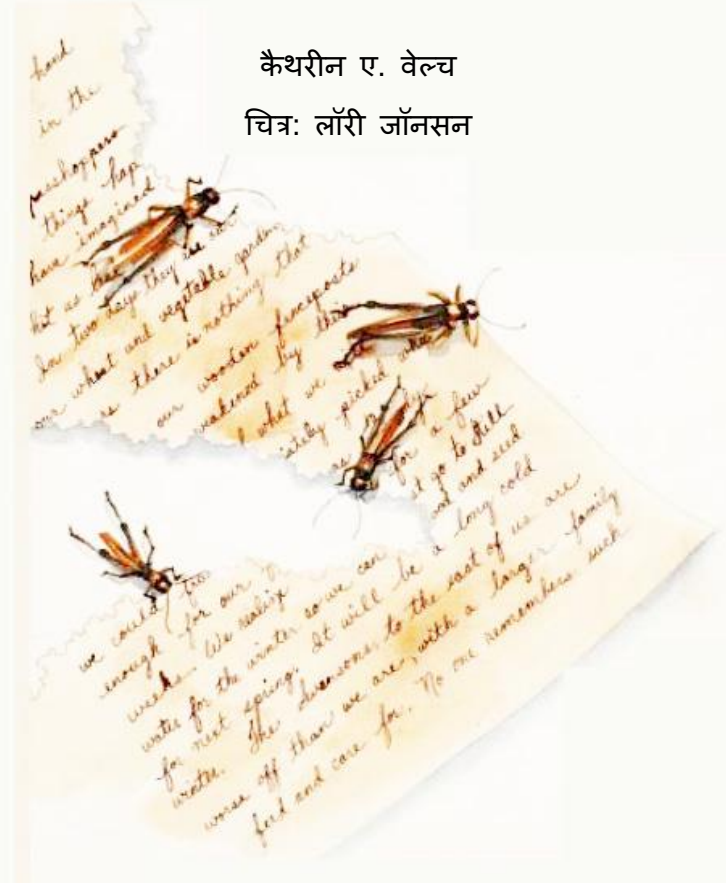 कैथरीन ए. वेल्च
चित्र: लॉरी जॉनसन
hand
in the
grasshoppers
things hap
have imagined
hot as
In two days they
our wheat and vegetable garden
there is nothing that
our wooden fenceposts
weakened by
what we
picked
for a few
it go to
and seed
we could
enough for our
weeks. We realize
water for the winter so we can
for next spring. It will be a long cold
winter. The Swensons, to the east of us are
worse off than we are, with a larger family
feed and care for. No one remembers such